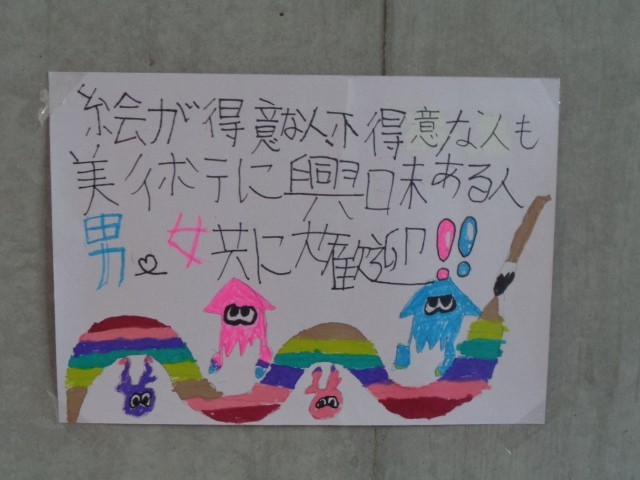 絵が得意な人、不得意な人も
美イボテに興味ある人
男。女共に大歓迎!!